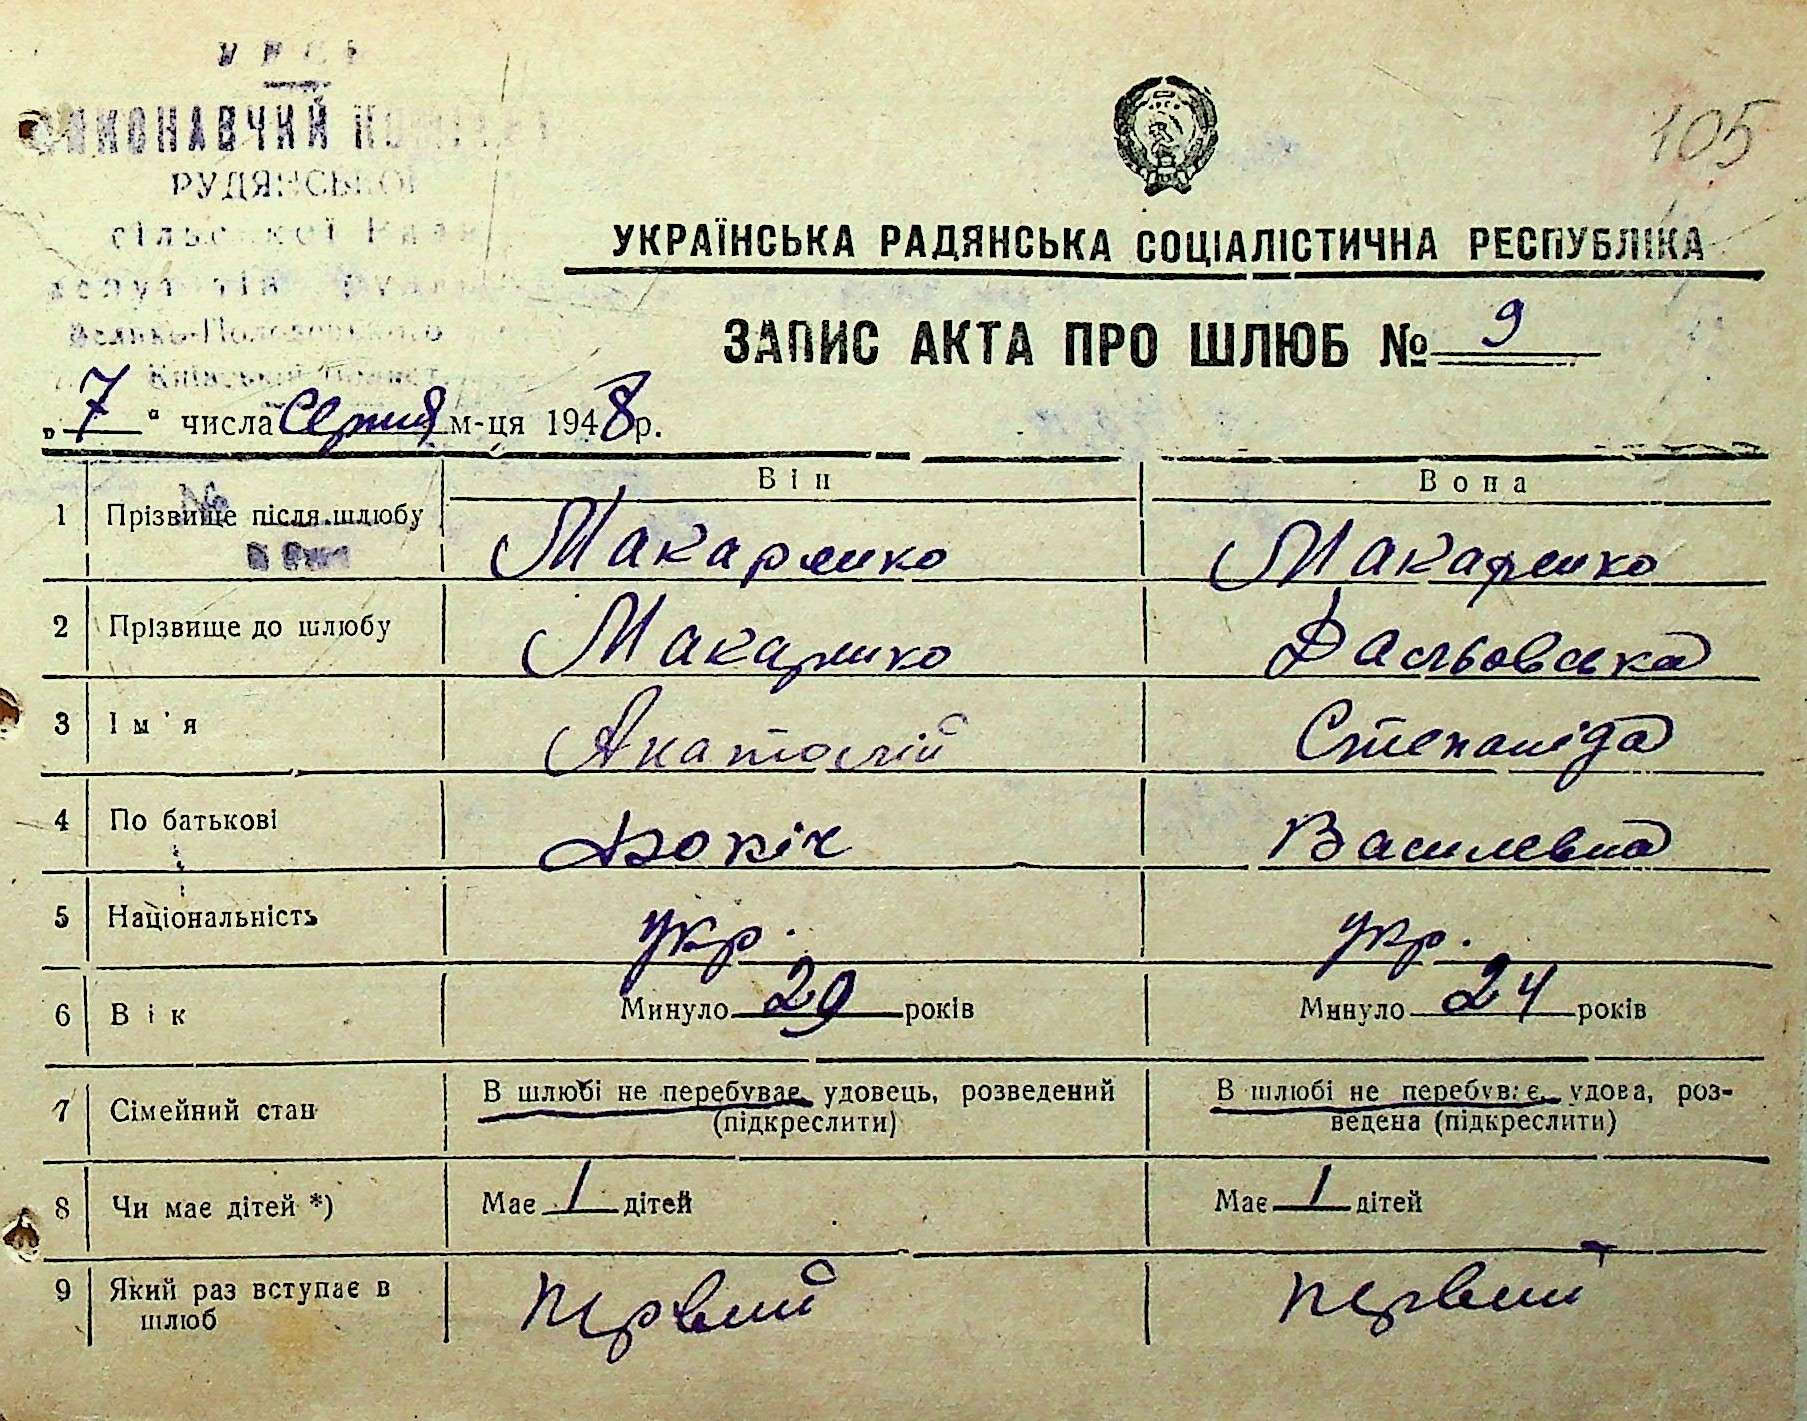 У Р С Р
ВИКОНАВЧИЙ КОМІТЕТ
РУДЯНСЬКОЇ
сільської Ради
депутатів
Велико-Половецького
Київської
105
УКРАЇНСЬКА РАДЯНСЬКА СОЦІАЛІСТИЧНА РЕСПУБЛІКА
ЗАПИС АКТА ПРО ШЛЮБ № 9
„7“ числа Серпня м-ця 1948 р.
Він Вона
№
1 Прізвище після шлюбу Макаренко Макаренко
2 Прізвище до шлюбу Макаренко
3 Ім'я Анатолій Степаніда
4 По батькові Василевна
5 Національність укр. укр.
6 Вік Минуло 29 років Минуло 24 років
7 Сімейний стан В шлюбі не перебуває, удовець, розведений (підкреслити) В шлюбі не перебуває, удова, роз-
ведена (підкреслити)
8 Чи має дітей *) Має 1 дітей Має 1 дітей
9 Який раз вступає в первий первий
шлюб